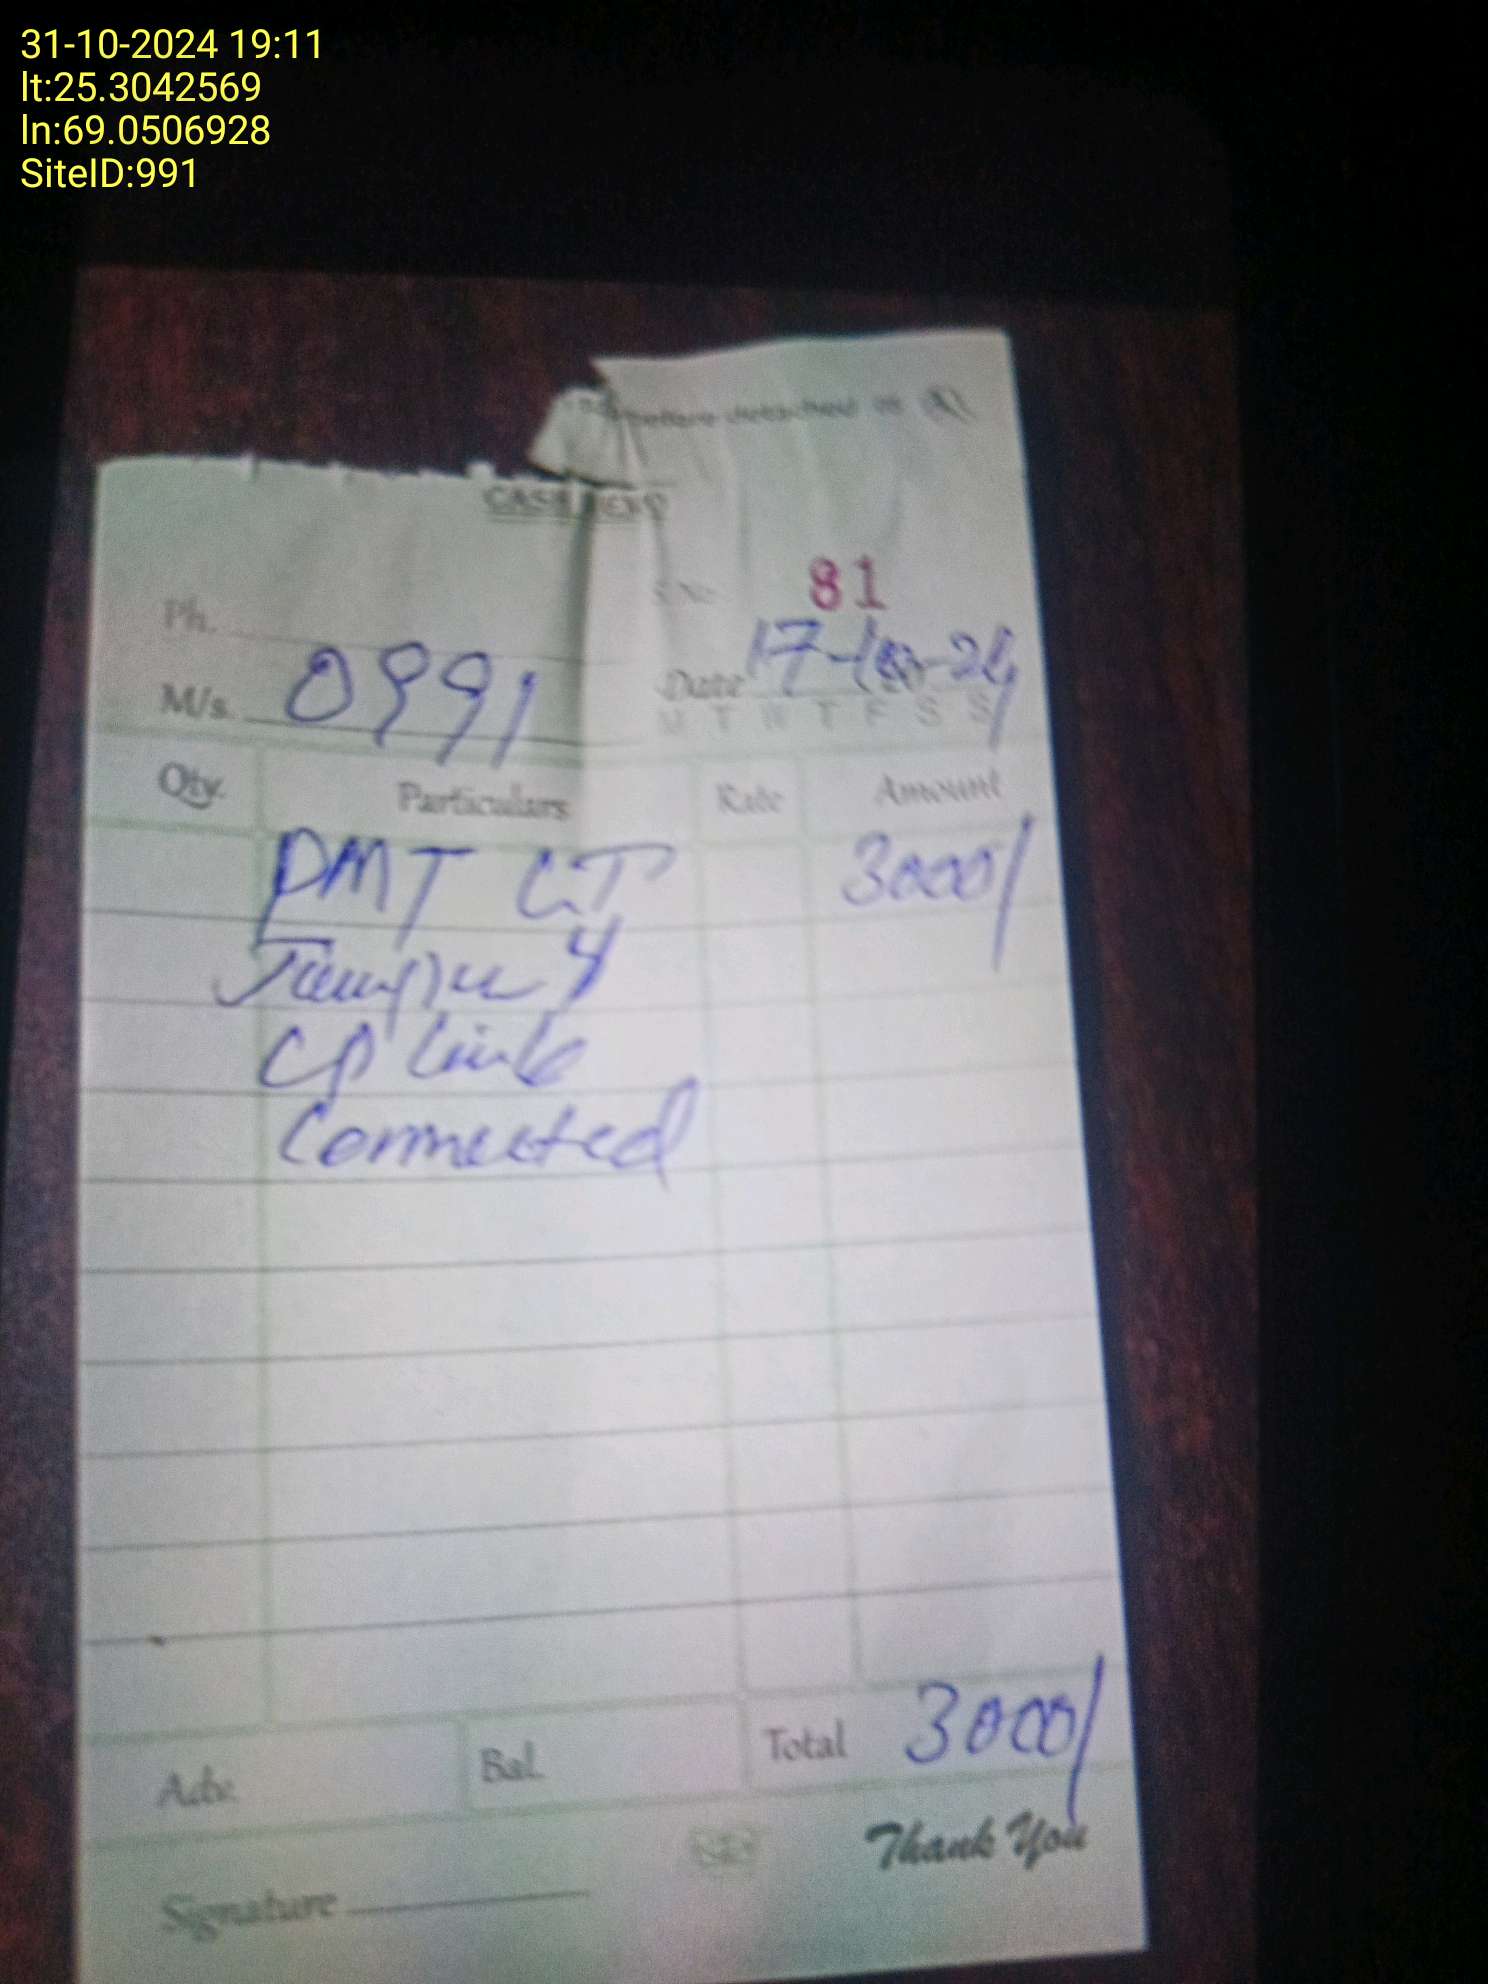 31-10-2024 19:11
lt:25.3042569
ln:69.0506928
SiteID:991
detached
CASH MEMO
S.No: 81
Ph.
M/s. 0991
Date 17-10-24
M T W T F S S
Qty. Particulars Rate Amount
PMT LT 3000/
CP link
Connected
Adv. Bal. Total 3000/
Thank You
Signature